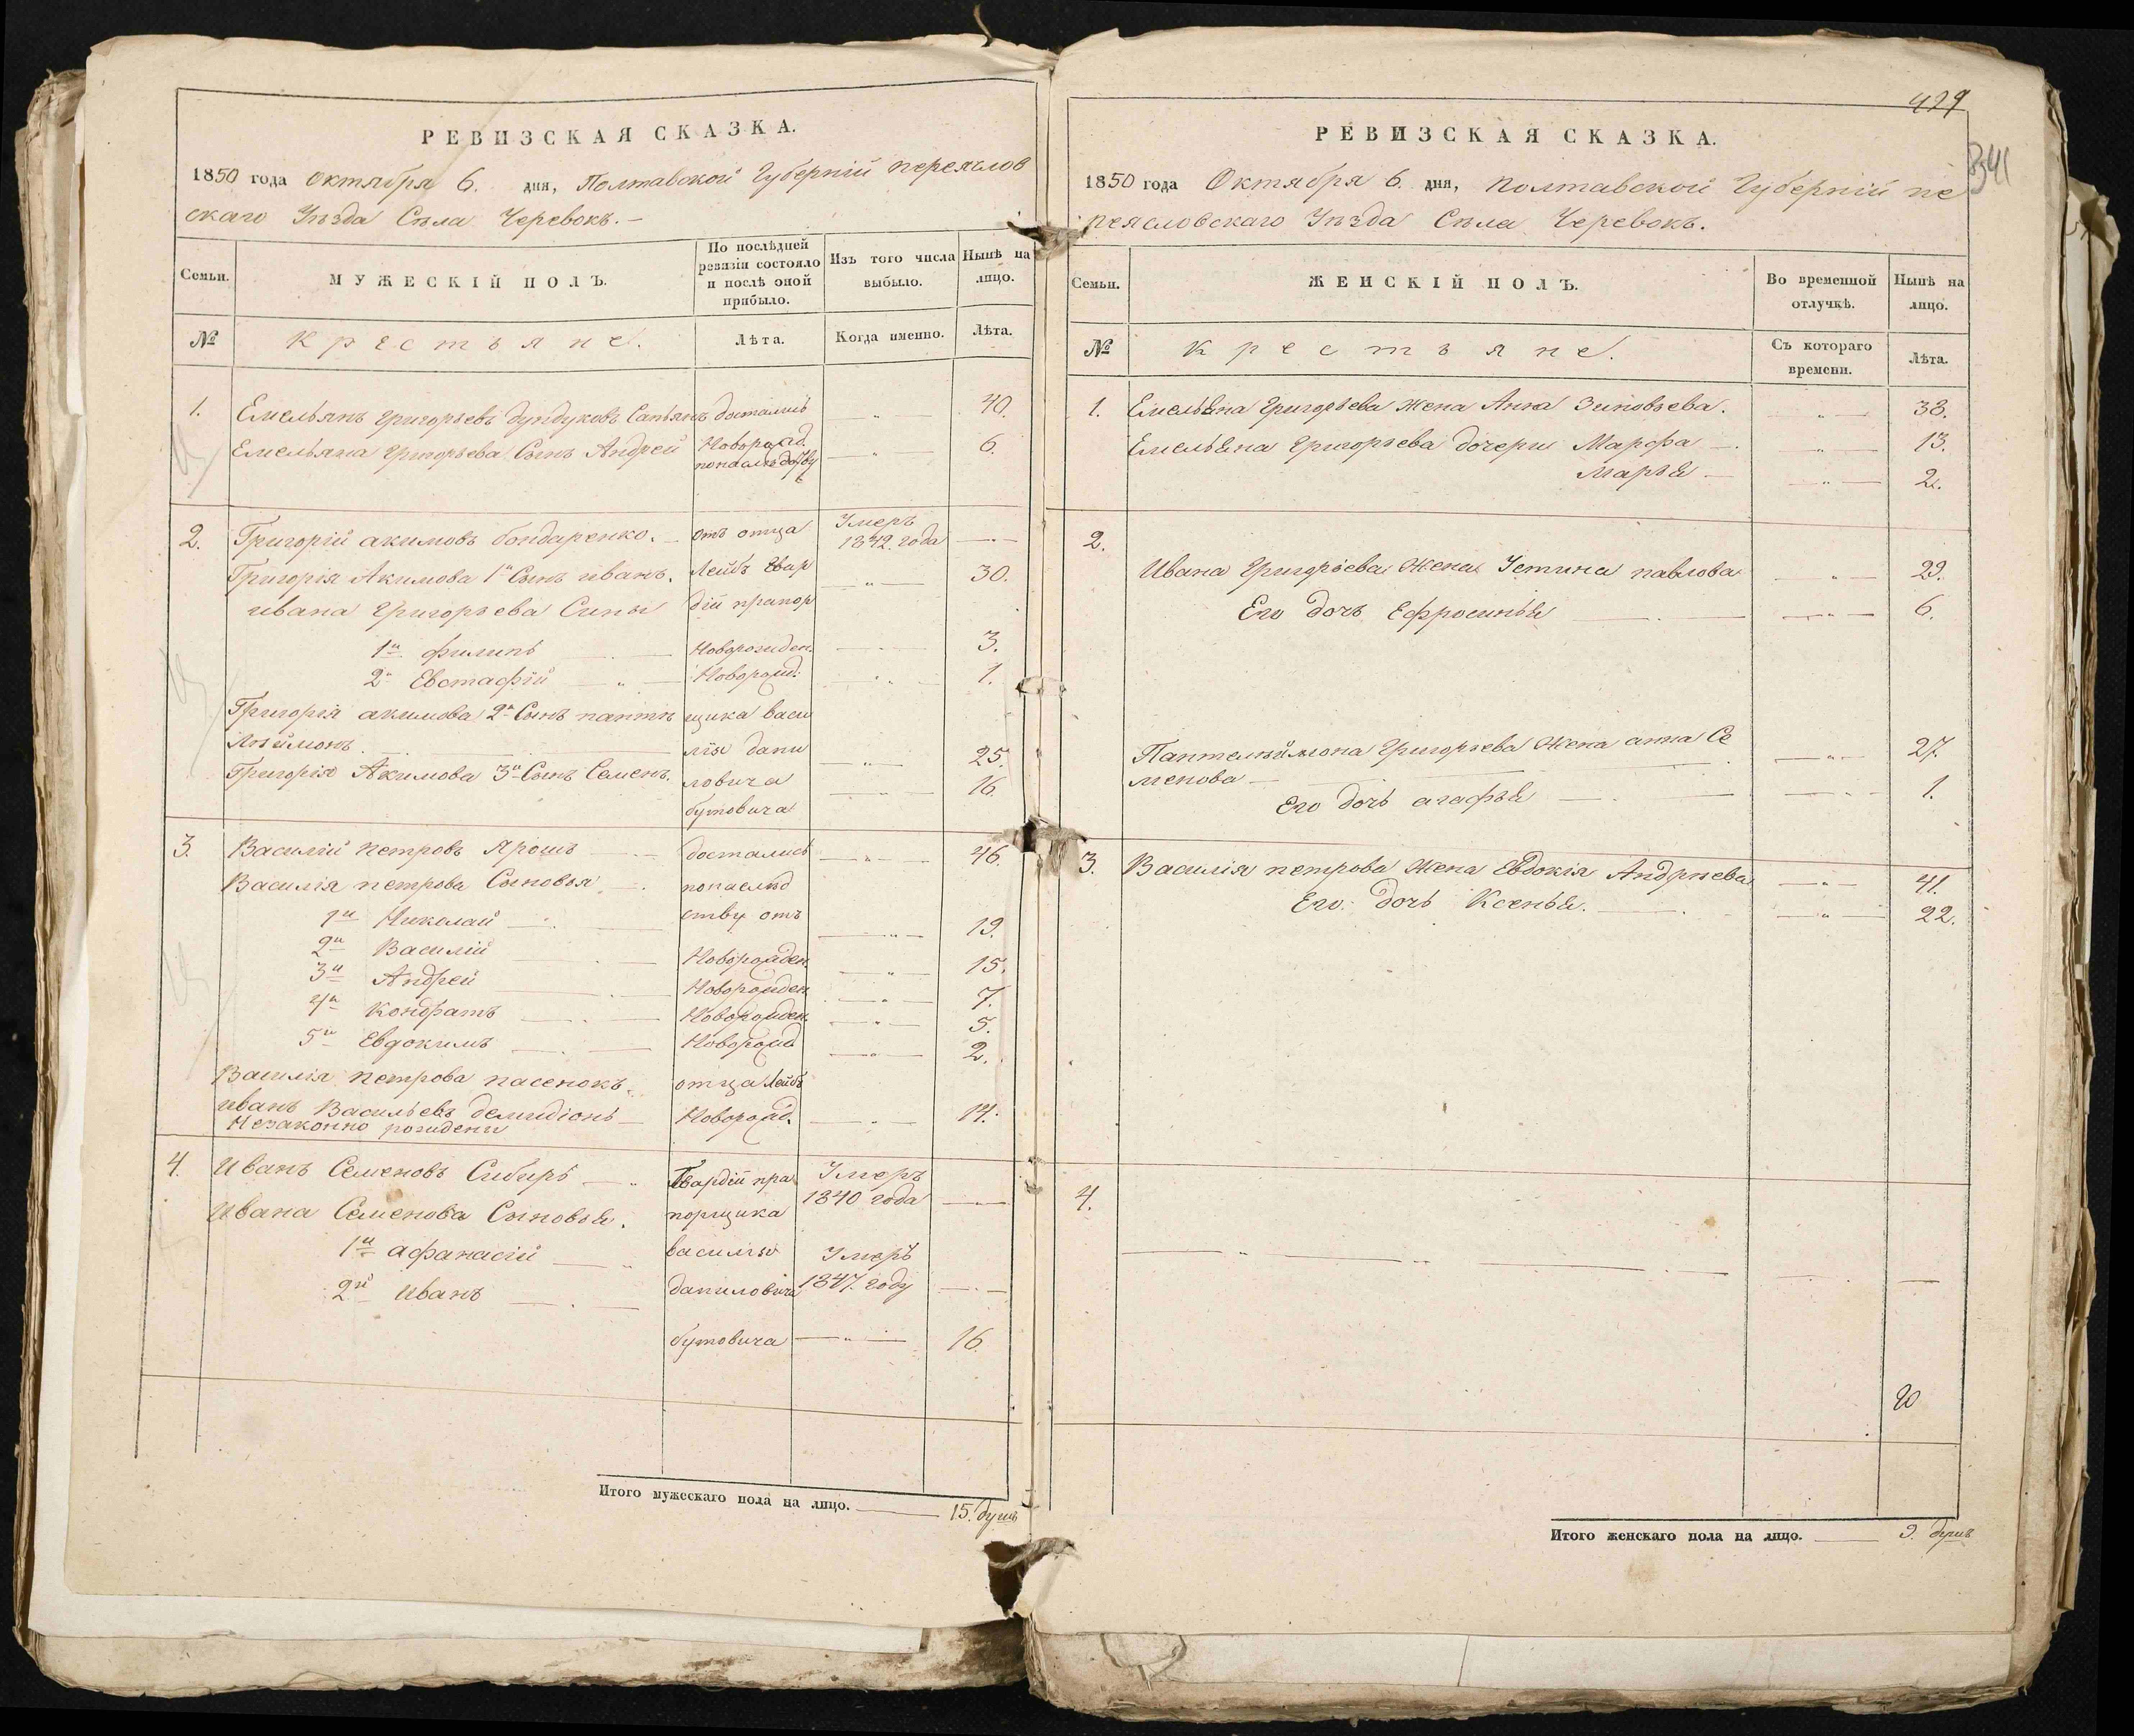 РЕВИЗСКАЯ СКАЗКА.
1850 года Октября 6. дня, Полтавской Губерніи переяслов
скаго Уѣзда Села Черевокъ.
Семьи.
МУЖЕСКІЙ ПОЛЪ.
По послѣдней ревизіи состояло и послѣ оной прибыло.
Изъ того числа выбыло.
Нынѣ на лицо.
№
Крестьяне.
Лѣта.
Когда именно.
Лѣта.
1. Емельянъ григорьевъ дундуковъ достались — 40.
Емельяна григорьева Сынъ Андрей Новорожд. — 6.
2. Григорій акимовъ бондаренко. отъ отца Умеръ 1842. года —
Григорія Акимова 1й Сынъ иванъ. Лейбъ Гвар — 30.
ивана григорьева Сины дій прапор
1й филипъ Новорожден. — 3.
2й Евстафій Новорожд. — 1.
Григорія акимова 2й Сынъ пантѣ щика васи
лѣймонъ. лія дани — 25.
Григорія Акимова 3й Сынъ Семенъ. ловича — 16.
бутовича
3. Василій петровъ Ярошъ достались — 46.
Василія петрова Сыновья понаслѣд
1й Николай ству отъ — 19.
2й Василій Новорожден. — 15.
3й Андрей Новорожден — 7.
4й Кондратъ Новорожден. — 5.
5й Евдокимъ Новорожд — 2.
Василія петрова пасенокъ отца Лейбъ
иванъ Васильевъ Новорожд. — 14.
Незаконно рожденъ
4. Иванъ Семеновъ Сибиръ Гвардій пра Умеръ 1840 года —
Ивана Семенова Сыновья. порщика
1й афанасій василія Умеръ
2й иванъ даниловича 1847. году —
бутовича — 16.
Итого мужескаго пола на лицо. 15. душъ
429
341
РЕВИЗСКАЯ СКАЗКА.
1850 года Октября 6. дня, полтавской Губерніи пе
реясловскаго Уѣзда Села Черевокъ.
Семьи.
ЖЕНСКІЙ ПОЛЪ.
Во временной отлучкѣ.
Нынѣ на лицо.
№
Крестьяне.
Съ котораго времени.
Лѣта.
1. Емельяна Григорьева жена Анна Зиновьева. — 38.
Емельяна григорьева дочери Марфа — 13.
Марья — 2.
2.
Ивана Григорьева Жена Устина павлова — 29.
Его дочъ Ефросинья — 6.
Пантелѣймона Григорьева жена анна Се — 27.
менова
Его дочъ агафья — 1.
3. Василія петрова жена Евдокія Андрѣева — 41.
Его дочъ Ксенья. — 22.
4.
Итого женскаго пола на лицо. 9. душъ